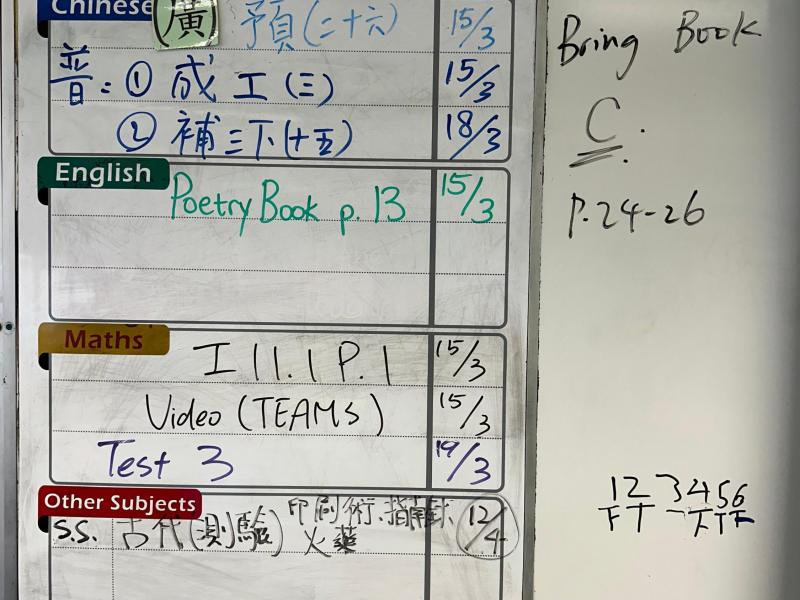 Chinese
廣 預(二十六) 15/3
普: ① 成工(三) 15/3
② 補三下(十五) 18/3
English
Poetry Book p. 13 15/3
Maths
I 11.1 P.1 15/3
Video (TEAMS) 15/3
Test 3 19/3
Other Subjects
S.S. 古代(測驗) 印刷術、指南針、火藥 12/4
Bring Book
C.
P.24-26
123456
FT-FTF